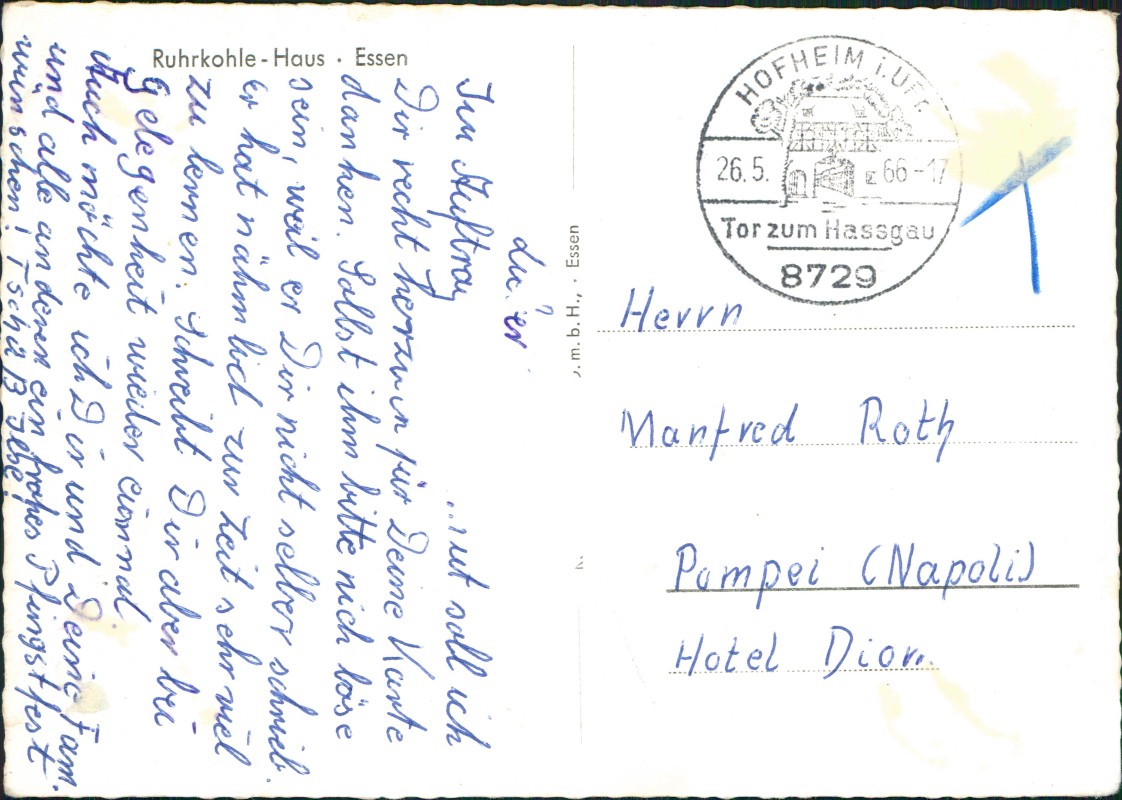 Ruhrkohle-Haus · Essen
Im Auftrag soll ich
Dir recht herzlich für Deine Karte
danken. Sollst ihm bitte nich böse
sein, weil er Dir nicht selber schrieb.
Er hat nähmlich zur Zeit sehr viel
zu lernen. Schreibt Dir aber bei
Gelegenheit wieder einmal.
Auch möchte ich Dir und Deine Fam.
und alle anderen ein frohes Pfingstfest
wünschen! Tschüß
.m.b.H., · Essen
HOFHEIM i. UFr.
26.5.66-17
Tor zum Hassgau
8729
Herrn
Manfred Roth
Pompei (Napoli)
Hotel